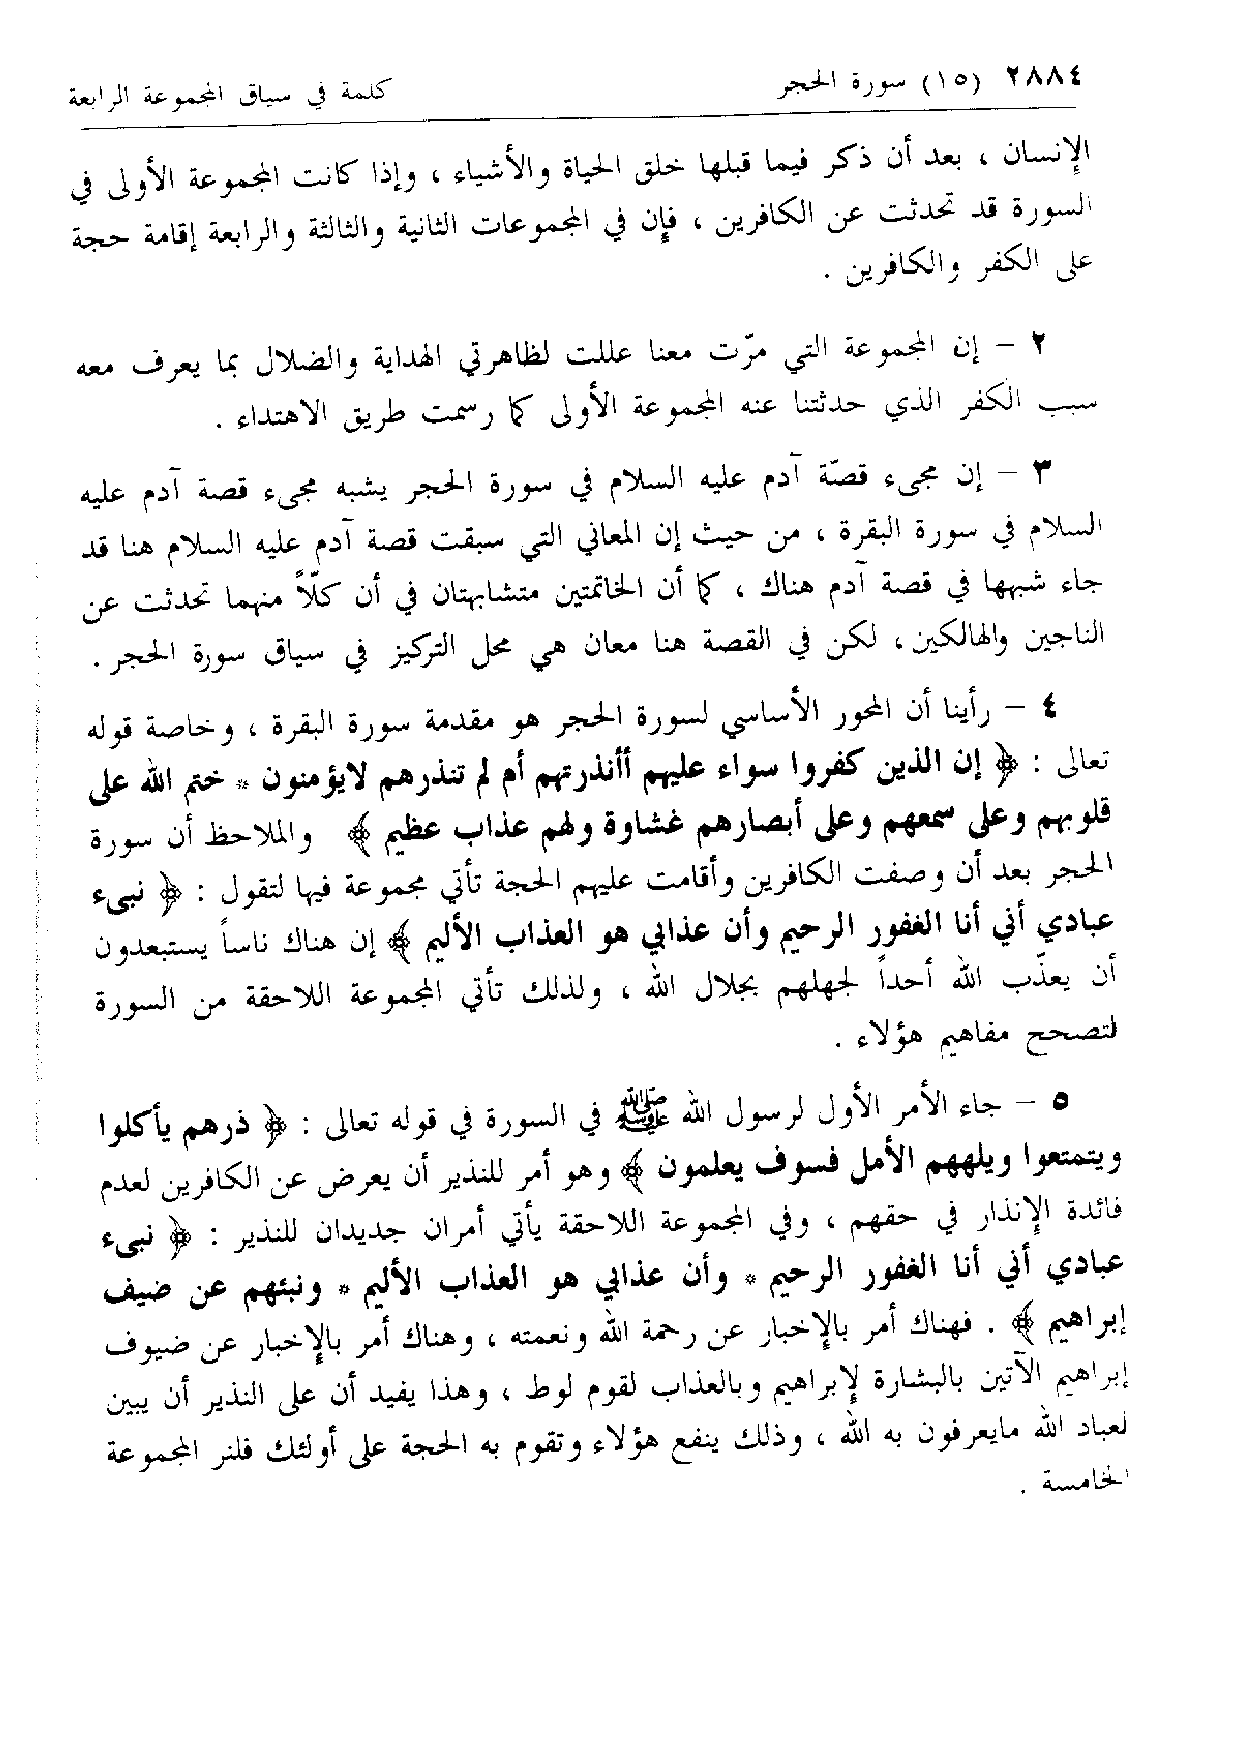 ٢٨٨٤ (١٥) سورة الحجر كلمة في سياق المجموعة الرابعة
الإنسان ، بعد أن ذكر فيما قبلها خلق الحياة والأشياء ، وإذا كانت المجموعة الأولى في
السورة قد تحدثت عن الكافرين ، فإن في المجموعات الثانية والثالثة والرابعة إقامة حجة
على الكفر والكافرين .
٢ – إن المجموعة التي مرّت معنا عللت لظاهرتي الهداية والضلال بما يعرف معه
سبب الكفر الذي حدثتنا عنه المجموعة الأولى كما رسمت طريق الاهتداء .
٣ – إن مجىء قصّة آدم عليه السلام في سورة الحجر يشبه مجىء قصة آدم عليه
السلام في سورة البقرة ، من حيث إن المعاني التي سبقت قصة آدم عليه السلام هنا قد
جاء شبهها في قصة آدم هناك ، كما أن الخاتمتين متشابهتان في أن كلّاً منهما تحدثت عن
الناجين والهالكين ، لكن في القصة هنا معان هي محل التركيز في سياق سورة الحجر .
٤ – رأينا أن المحور الأساسي لسورة الحجر هو مقدمة سورة البقرة ، وخاصة قوله
تعالى : ﴿ إن الذين كفروا سواء عليهم أأنذرتهم أم لم تنذرهم لايؤمنون * ختم الله على
قلوبهم وعلى سمعهم وعلى أبصارهم غشاوة ولهم عذاب عظيم ﴾ والملاحظ أن سورة
الحجر بعد أن وصفت الكافرين وأقامت عليهم الحجة تأتي مجموعة فيها لتقول : ﴿ نبىء
عبادي أني أنا الغفور الرحيم وأن عذابي هو العذاب الأليم ﴾ إن هناك ناساً يستبعدون
أن يعذّب الله أحداً لجهلهم بجلال الله ، ولذلك تأتي المجموعة اللاحقة من السورة
لتصحح مفاهيم هؤلاء .
٥ – جاء الأمر الأول لرسول الله ﷺ في السورة في قوله تعالى : ﴿ ذرهم يأكلوا
ويتمتعوا ويلههم الأمل فسوف يعلمون ﴾ وهو أمر للنذير أن يعرض عن الكافرين لعدم
فائدة الإنذار في حقهم ، وفي المجموعة اللاحقة يأتي أمران جديدان للنذير : ﴿ نبىء
عبادي أني أنا الغفور الرحيم * وأن عذابي هو العذاب الأليم * ونبئهم عن ضيف
إبراهيم ﴾ . فهناك أمر بالإخبار عن رحمة الله ونعمته ، وهناك أمر بالإخبار عن ضيوف
إبراهيم الآتين بالبشارة لإبراهيم وبالعذاب لقوم لوط ، وهذا يفيد أن على النذير أن يبين
لعباد الله مايعرفون به الله ، وذلك ينفع هؤلاء وتقوم به الحجة على أولئك فلنر المجموعة
الخامسة .